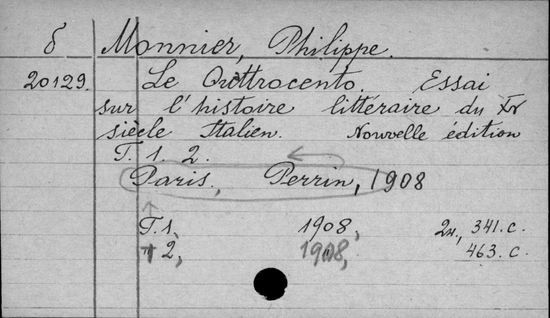 δ Monnier, Philippe.
20129. Le Quttrocento. Essai
sur l'histoire littéraire du XV
siècle Italien. Nouvelle édition
T. 1. 2.
Paris, Perrin, 1908
T. 1. 1908, 2н., 341. c.
T 2, 1908, 463. c.